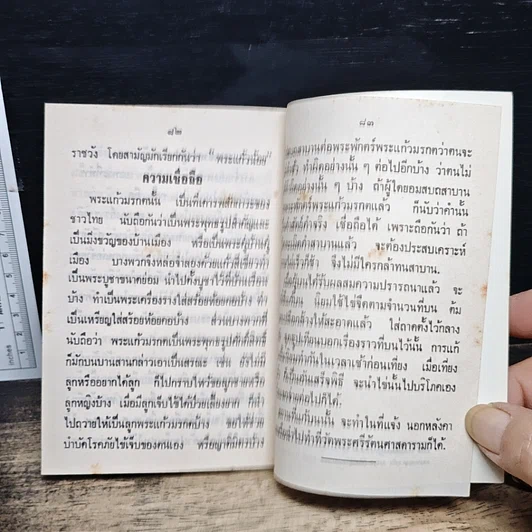 ๘๒
ราชวัง โดยสามัญมักเรียกกันว่า "พระแก้วน้อย"
ความเชื่อถือ
พระแก้วมรกตนั้น เป็นที่เคารพสักการะของ
ชาวไทย นับถือกันว่าเป็นพระพุทธรูปสำคัญและ
เป็นมิ่งขวัญของบ้านเมือง หรือเป็นพระคู่บ้านคู่
เมือง บางพวกจึงหล่อจำลองด้วยแก้วหรือ
เป็นพระบูชาขนาดย่อม นำไปตั้งบูชาไว้ที่บ้านเรือน
บ้าง ทำเป็นพระเครื่องรางใส่สร้อยห้อยคอบ้าง ทำ
เป็นเหรียญใส่สร้อยห้อยคอบ้าง ส่วนบางพวกที่
นับถือว่า พระแก้วมรกตเป็นพระศักดิ์สิทธิ์
ก็มักบนบานสานกล่าวเอาเป็นสรณะ เช่น ยังไม่มี
ลูกหรืออยากได้ลูก ก็ไปกราบไหว้ขอลูกชายหรือ
ลูกหญิงบ้าง เมื่อมีลูกเจ็บไข้ได้ป่วยเลี้ยงยาก ก็ทำ
ไปถวายให้เป็นลูกพระแก้วมรกตบ้าง ขอให้
บำบัดโรคภัยไข้เจ็บของตนเอง หรือญาติมิตรบ้าง
๘๓
สาบานต่อพระพักตร์พระแก้วมรกตว่าคนจะ
ทำผิดอย่างนั้น ๆ ต่อไปอีกบ้าง ว่าคนไม่
ทำผิดอย่างนั้น ๆ บ้าง ถ้าผู้ใดยอมสบถสาบาน
พระแก้วมรกตแล้ว ก็นับว่าคำนั้น
คำจริง เชื่อถือได้ เพราะถือกันว่า ถ้า
คำสาบานแล้ว จะต้องประสบเคราะห์
จึงไม่มีใครกล้าทนสาบาน.
บนได้รับผลสมความปรารถนาแล้ว จะ
นิยมใช้ไข่จืดตามจำนวนที่บน ต้ม
ล้างให้สะอาดแล้ว ใส่ถาดตั้งไว้กลาง
บอกเรื่องราวที่บนไว้นั้น การแก้
ทำกันในเวลาเช้าก่อนเที่ยง เมื่อเที่ยง
เป็นอันเสร็จพิธี จะนำไข่นั้นไปบริโภคเอง
ต่อไปก็ได้
บนกันนั้น จะทำในที่แจ้ง นอกหลังคา
ไปทำที่วัดพระศรีรัตนศาสดารามก็ได้.